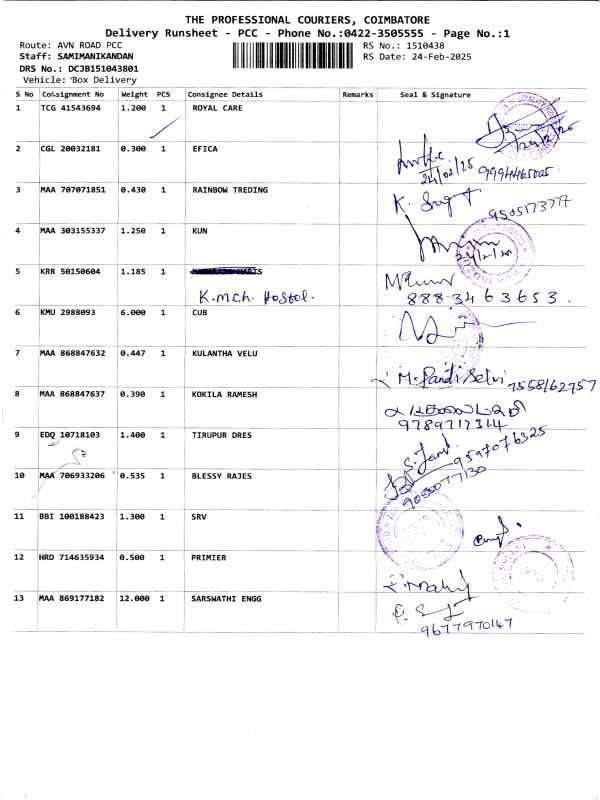 THE PROFESSIONAL COURIERS, COIMBATORE
Delivery Runsheet - PCC - Phone No.:0422-3505555 - Page No.:1
Route: AVN ROAD PCC RS No.: 1510438
Staff: SAMIMANIKANDAN RS Date: 24-Feb-2025
DRS No.: DCJB151043801
Vehicle: Box Delivery
S No Consignment No Weight PCS Consignee Details Remarks Seal & Signature
1 TCG 41543694 1.200 1 ROYAL CARE
2 CGL 20032181 0.300 1 EFICA
24/02/25 9994465025
3 MAA 707071851 0.430 1 RAINBOW TREDING
9505173777
4 MAA 303155337 1.250 1 KUN
5 KRR 50150604 1.185 1
K.mch. Hostol. 8883463653.
6 KMU 2988093 6.000 1 CUB
7 MAA 868847632 0.447 1 KULANTHA VELU
M. Pandi Selvi 7558162757
8 MAA 868847637 0.390 1 KOKILA RAMESH
9789717314
9 EDQ 10718103 1.400 1 TIRUPUR DRES
9597076325
10 MAA 706933206 0.535 1 BLESSY RAJES
9080077130
11 BBI 100188423 1.300 1 SRV
12 HRD 714635934 0.500 1 PRIMIER
13 MAA 869177182 12.000 1 SARSWATHI ENGG
9677970147